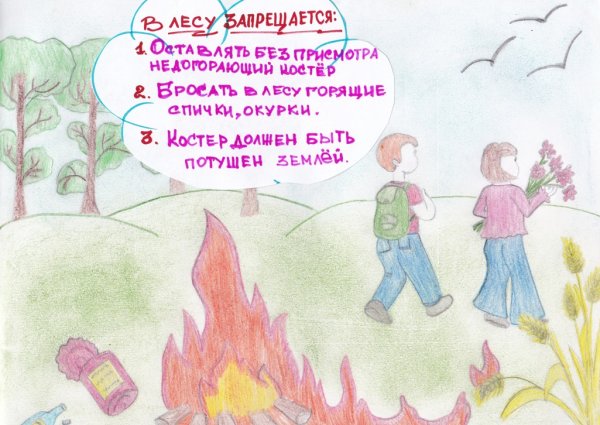 В ЛЕСУ ЗАПРЕЩАЕТСЯ:
1. ОСТАВЛЯТЬ БЕЗ ПРИСМОТРА
НЕДОГОРАЮЩИЙ КОСТЁР
2. БРОСАТЬ В ЛЕСУ ГОРЯЩИЕ
СПИЧКИ, ОКУРКИ.
3. КОСТЕР ДОЛЖЕН БЫТЬ
ПОТУШЕН ЗЕМЛЁЙ.